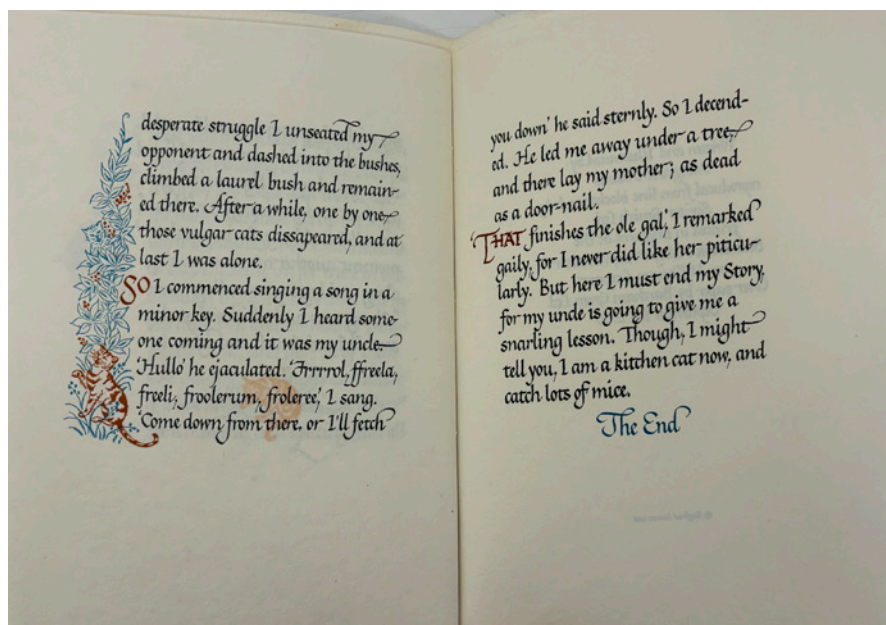 desperate struggle I unseated my
opponent and dashed into the bushes,
climbed a laurel bush and remain-
ed there. After a while, one by one
those vulgar cats dissapeared, and at
last I was alone.
SO I commenced singing a song in a
minor key. Suddenly I heard some-
one coming and it was my uncle.
'Hullo' he ejaculated. 'Frrrrol, ffreela,
freeli, froolerum, froleree,' I sang.
'Come down from there, or I'll fetch
you down' he said sternly. So I decend-
ed. He led me away under a tree,
and there lay my mother; as dead
as a door-nail.
'THAT finishes the ole gal,' I remarked
gaily, for I never did like her piticu-
larly. But here I must end my Story,
for my uncle is going to give me a
snarling lesson. Though, I might
tell you, I am a kitchen cat now, and
catch lots of mice.
The End